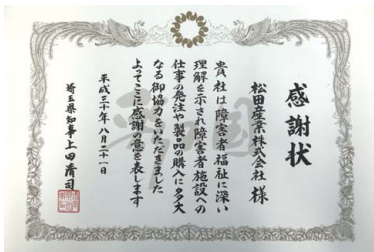 感謝状
松田産業株式会社 様
貴社は障害者福祉に深い
理解を示され障害者施設への
仕事の発注や製品の購入に多大
なる御協力をいただきました
よってここに感謝の意を表します
平成三十年八月二十一日
埼玉県知事上田清司